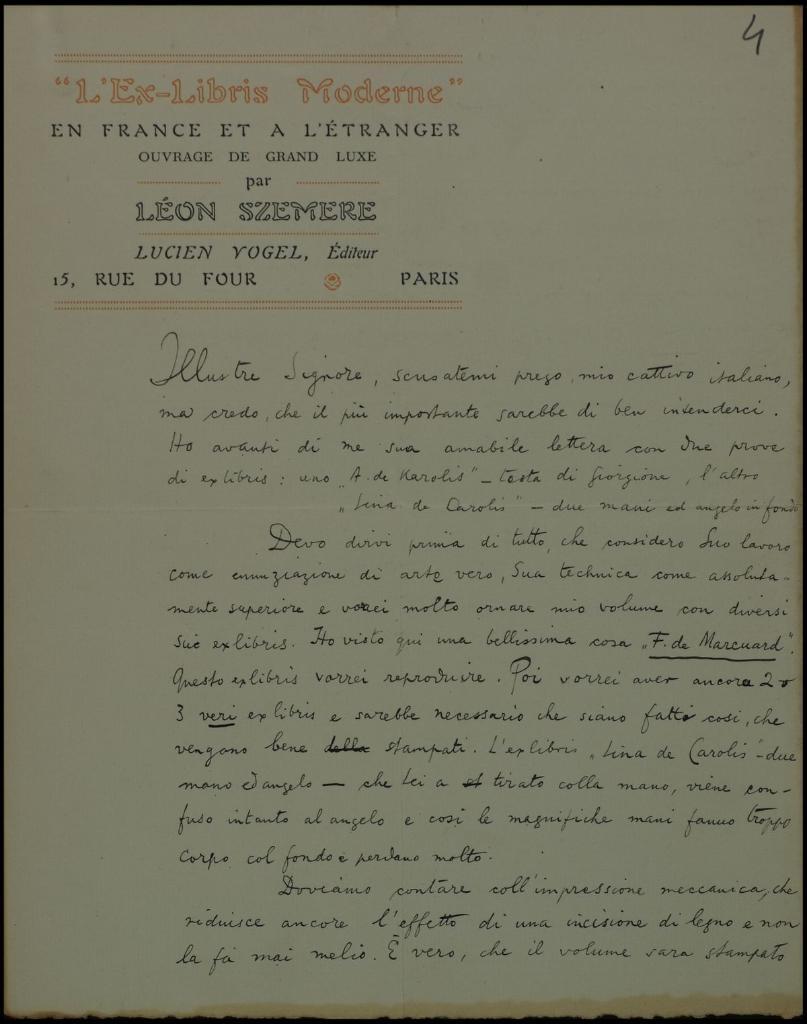 4
"L'Ex-Libris Moderne"
EN FRANCE ET A L'ÉTRANGER
OUVRAGE DE GRAND LUXE
par
LÉON SZEMERE
LUCIEN VOGEL, Éditeur
15, RUE DU FOUR PARIS
Illustre Signore, scusatemi prego, mio cattivo italiano,
ma credo, che il più importante sarebbe di ben intenderci.
Ho avanti di me sua amabile lettera con due prove
di exlibris: uno „A. de Karolis" – testa di Giorgione, l'altro
„Lina de Carolis" – due mani ed angelo in fondo
Devo dirvi prima di tutto, che considero Suo lavoro
come enunziazione di arte vero, Sua technica come assoluta-
mente superiore e vorei molto ornare mio volume con diversi
Suc exlibris. Ho visto qui una bellissima cosa „F. de Marcuard".
Questo exlibris vorrei reproduire. Poi vorrei aver ancora 2 o
3 veri exlibris e sarebbe necessario che siano fatti cosi, che
vengano bene della stampati. L'exlibris „Lina de Carolis" – due
mano ed angelo — che Lei a tirato colla mano, viene con-
fuso intanto al angelo e cosi le magnifiche mani fanno troppo
corpo col fondo e perdano molto.
Doviamo contare coll'impressione meccanica, che
riduisce ancore l'effetto di una incisione di legno e non
la fa mai melio. È vero, che il volume sara stampato